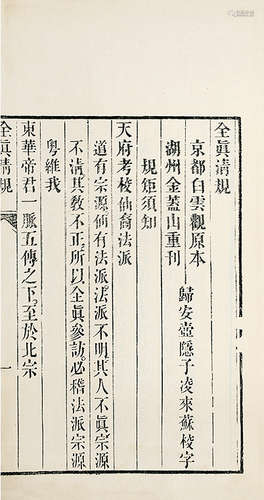 全眞清規
京都白雲觀原本
湖州金蓋山重刊
歸安壺隱子凌來蘇校字
規矩須知
天府考校仙裔法派
道有宗源仙有法派法派不明其人不眞宗源
不清其教不正所以全眞參訪必稽法派宗源
粤維我
東華帝君一脈五傳之下至於北宗
全眞清規
一